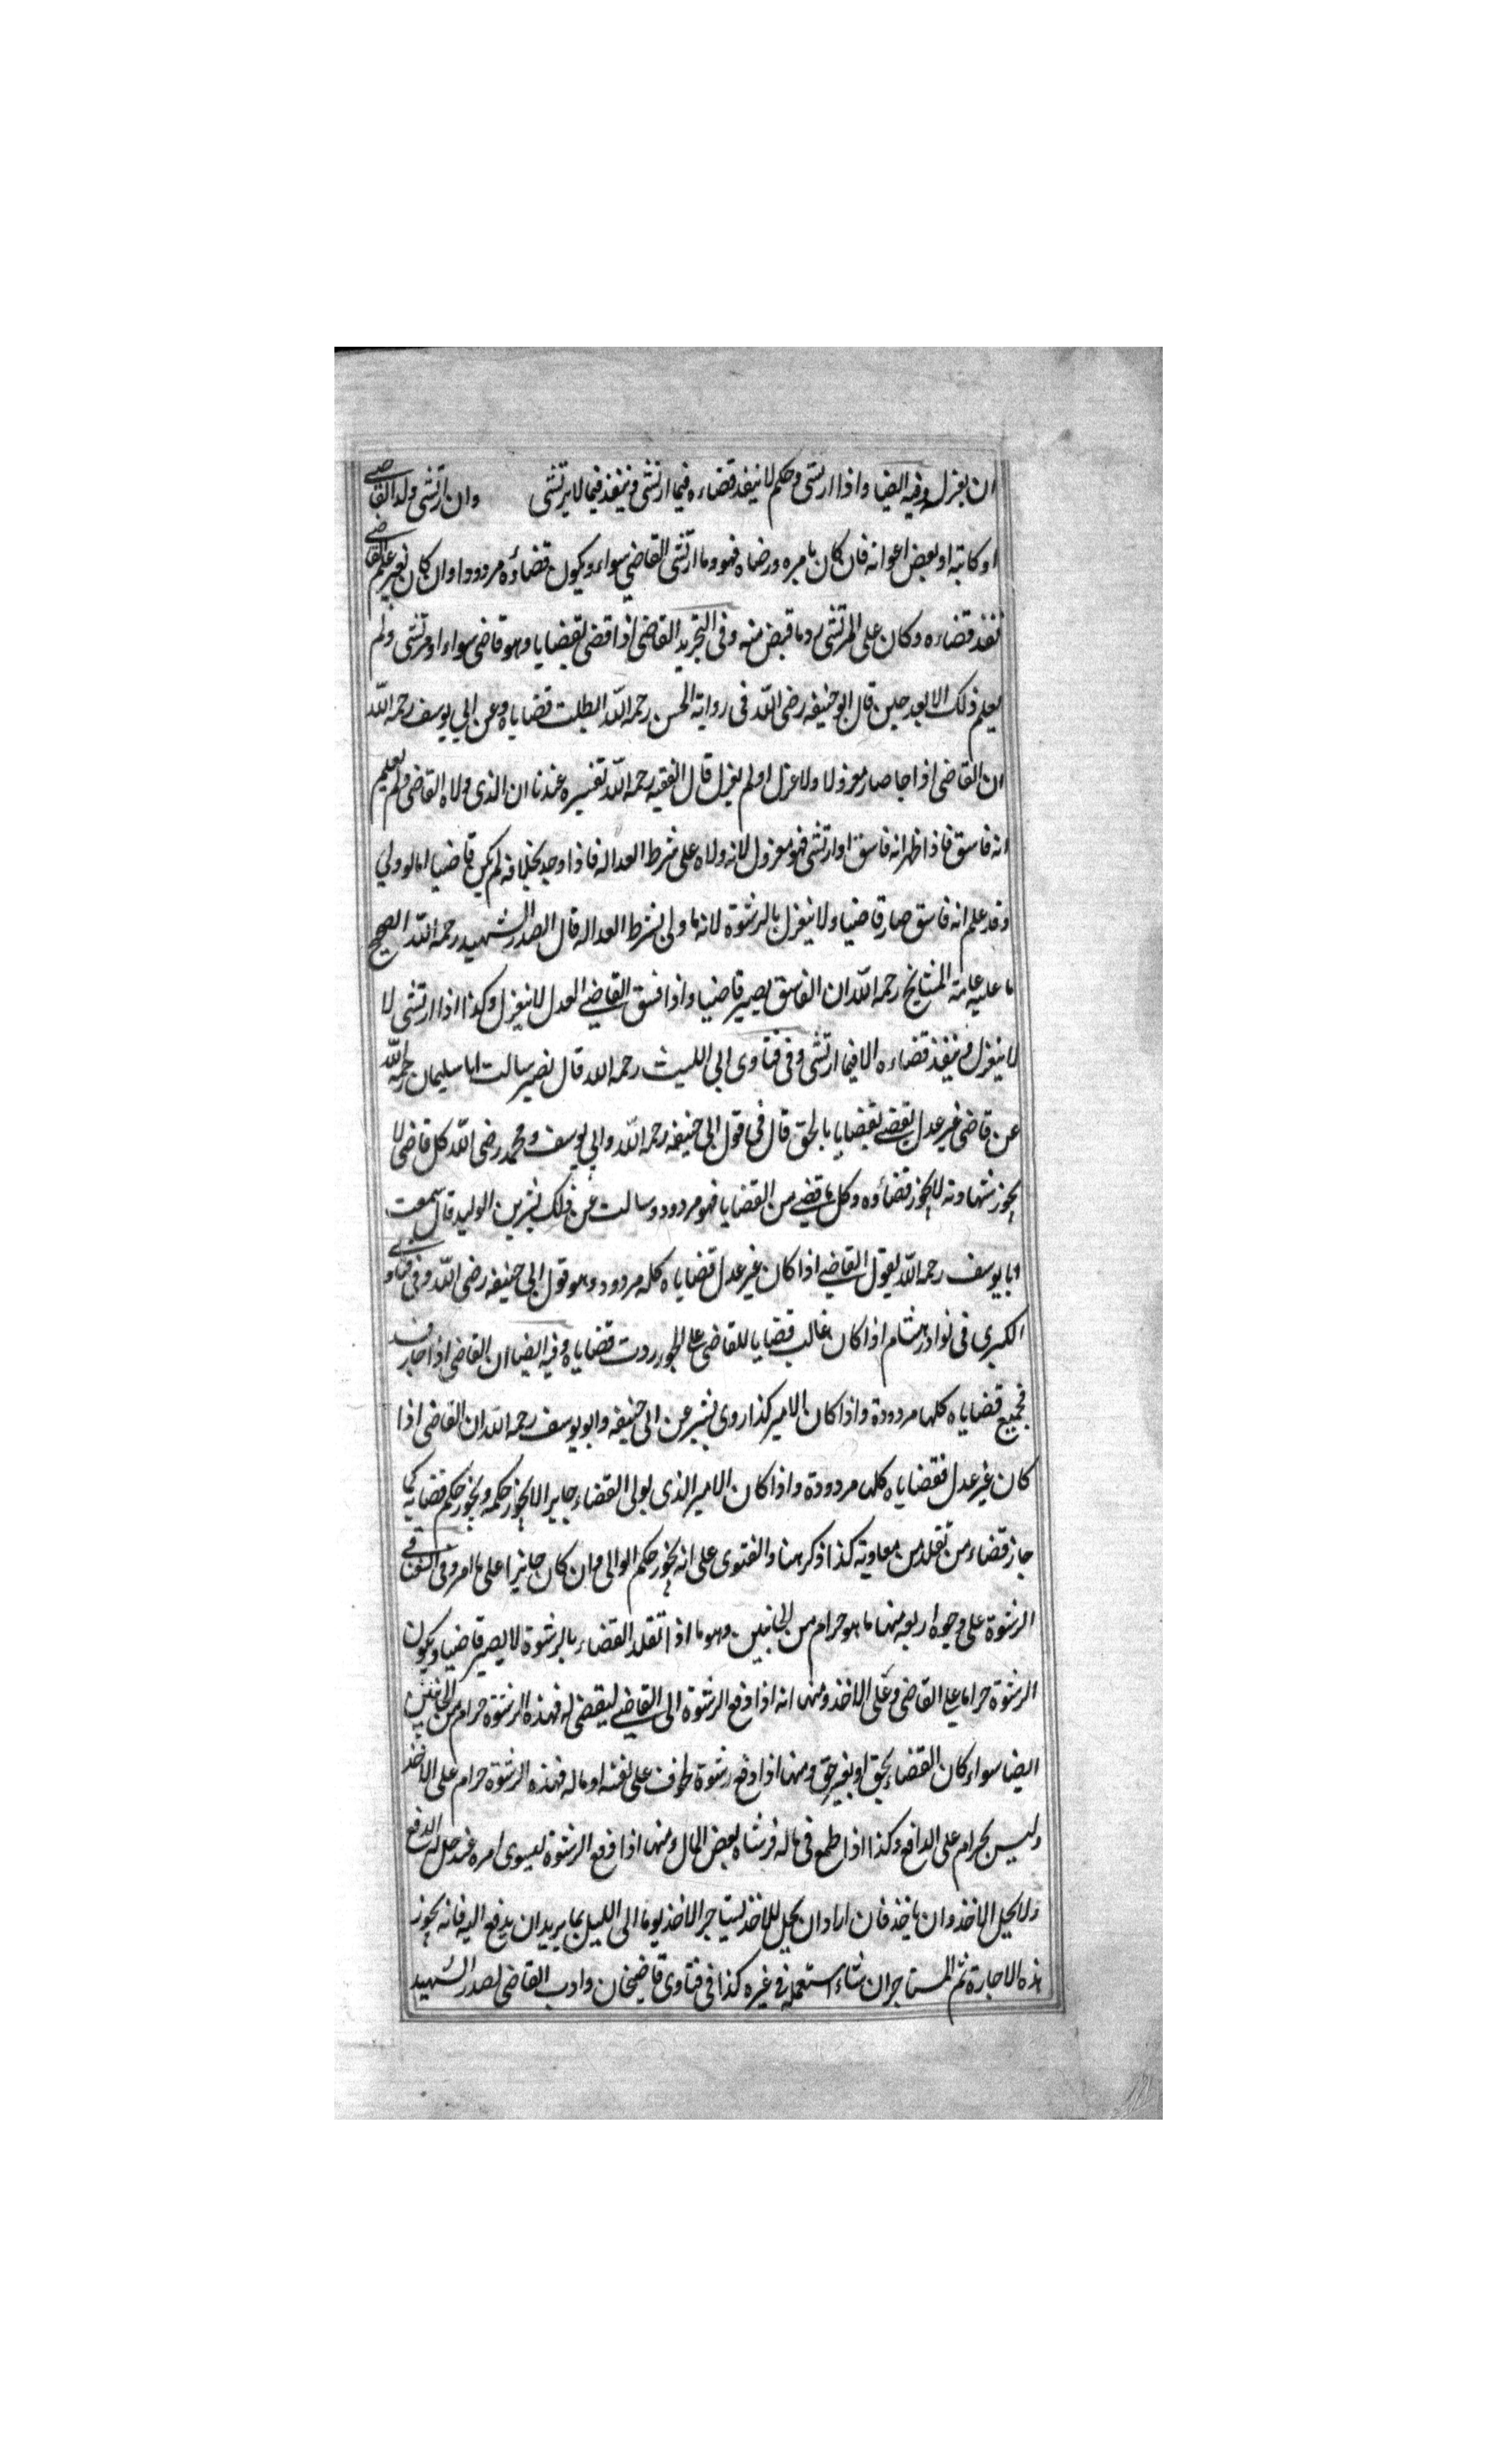 ان يعزل وفيه ايضا واذا ارتشى وحكم لا ينفذ قضاءه فيما ارتشى وينفذ فيما لا يرتشى وان ارتشى ولد القاضي
او كاتبه او بعض اعوانه فان كان بامره ورضاه فهو وما ارتشى القاضي سواء ويكون قضاؤه مردودا وان كان بغير علم القاضي
نفذ قضاءه وكان على المرتشى رد ما قبض منه وفى التجريد القاضى اذا قضى بقضايا وهو قاضى سواء او مرتشى ولم
يعلم ذلك الا بعد حين قال ابو حنيفه رضى الله فى رواية الحسن رحمه الله ابطلت قضاياه وعن ابي يوسف رحمه الله
ان القاضى اذا جا صار معزولا ولا عزل او لم يعزل قال الفقيه رحمه الله تفسيره عندنا ان الذى ولاه القاضى ولم يعلم
انه فاسق فاذا ظهر انه فاسق او ارتشى فهو معزول لانه ولاه على شرط العداله فاذا وجد بخلافه لم يكن قاضيا اما لو ولي
وقد علم انه فاسق صار قاضيا ولا ينعزل بالرشوة لانه ما ولى بشرط العداله قال الصدر الشهيد رحمه الله الصحيح
ما عليه عامة المشايخ رحمه الله ان الفاسق يصير قاضيا واذا فسق القاضي العدل لا ينعزل وكذا اذا ارتشى لا
لا ينعزل وينفذ قضاءه الا فيما ارتشى وفى فتاوى ابى الليث رحمه الله قال نصير سالت ابا سليمان رحمه الله
عن قاضى غير عدل يقضي بقضايا بالحق قال فى قول ابى حنيفه رحمه الله وابي يوسف ومحمد رضى الله كل قاضى لا
يجوز شهادته لا يجوز قضاؤه وكل ما قضي من القضايا فهو مردود وسالت عن ذلك بشر بن الوليد قال سمعت
ابا يوسف رحمه الله يقول القاضي اذا كان غير عدل قضاياه كله مردود وهو قول ابى حنيفه رضى الله وفى فتاوى
الكبرى فى نوادر هشام اذا كان غالب قضايا للقاضى على الجور ردت قضاياه وفيه ايضا ان القاضى اذا جار
فجميع قضاياه كلها مردودة واذا كان الامير كذا روى بشير عن ابى حنيفه وابو يوسف رحمه الله ان القاضى اذا
كان غير عدل فقضاياه كلها مردودة واذا كان الامير الذى يولى القضاء جايرا لا يجوز حكمه ويجوز حكم قضايه كما
جاز قضاء من تقلد من معاويه كذا ذكر هنا والفتوى على انه يجوز حكم الوالى وان كان جايرا على ما مر وفى
الرشوة على وجوه اربعه منها ما هو حرام من الجانبين وهو ما اذا تقلد القضاء بالرشوة لا يصير قاضيا ويكون
الرشوة حراما على القاضى وعلى الاخذ ومنها انه اذا دفع الرشوة الى القاضي ليقضى له فهذه الرشوة حرام من الجانبين
ايضا سواء كان القضاء بحق او بغير حق ومنها اذا دفع رشوة خوف على نفسه او ماله فهذه الرشوة حرام على الاخذ
وليس بحرام على الدافع وكذا اذا طمع فى ماله فرشاه بعض المال ومنها اذا دفع الرشوة ليسوى امره عند حل له الدفع
ولا يحل الاخذ وان ياخذ فان اراد ان يحل للاخذ يستاجر الاخذ يوما الى الليل بما يريد ان يدفع اليه فانه يجوز
هذه الاجارة ثم المستاجر ان شاء استعمله فى غيره كذا فى فتاوى قاضيخان وادب القاضى لصدر الشهيد